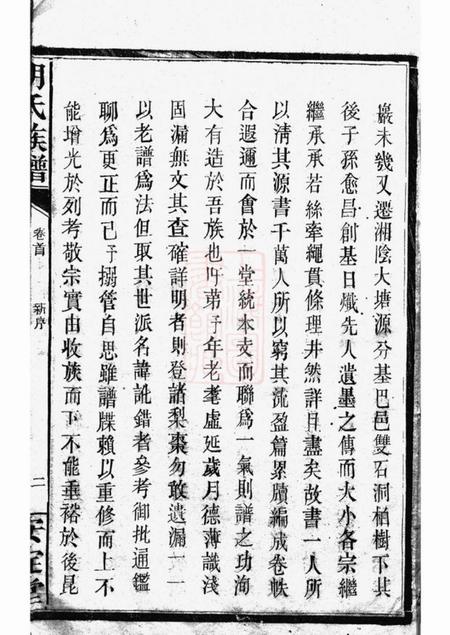 巖未幾又遷湘陰大塘源分基巴邑雙石洞柏樹下其
後子孫愈昌創基日熾先人遺墨之傳而大小各宗繼
繼承承若絲牽繩貫條理井然詳且盡矣故書一人所
以清其源書千萬人所以窮其流盈篇累牘編成卷帙
合遐邇而會於一堂統本支而聯爲一氣則譜之功洵
大有造於吾族也叶萴予年老耄虛延歲月德薄識淺
固漏無文其查確詳明者則登諸梨棗勿敢遺漏一一
以老譜爲法但取其世派名諱訛錯者參考御批通鑑
聊爲更正而已予搦管自思雖譜牒賴以重修而上不
能增光於列考敬宗實由收族而下不能垂裕於後昆
胡氏族譜
卷首
新序
二
安定堂